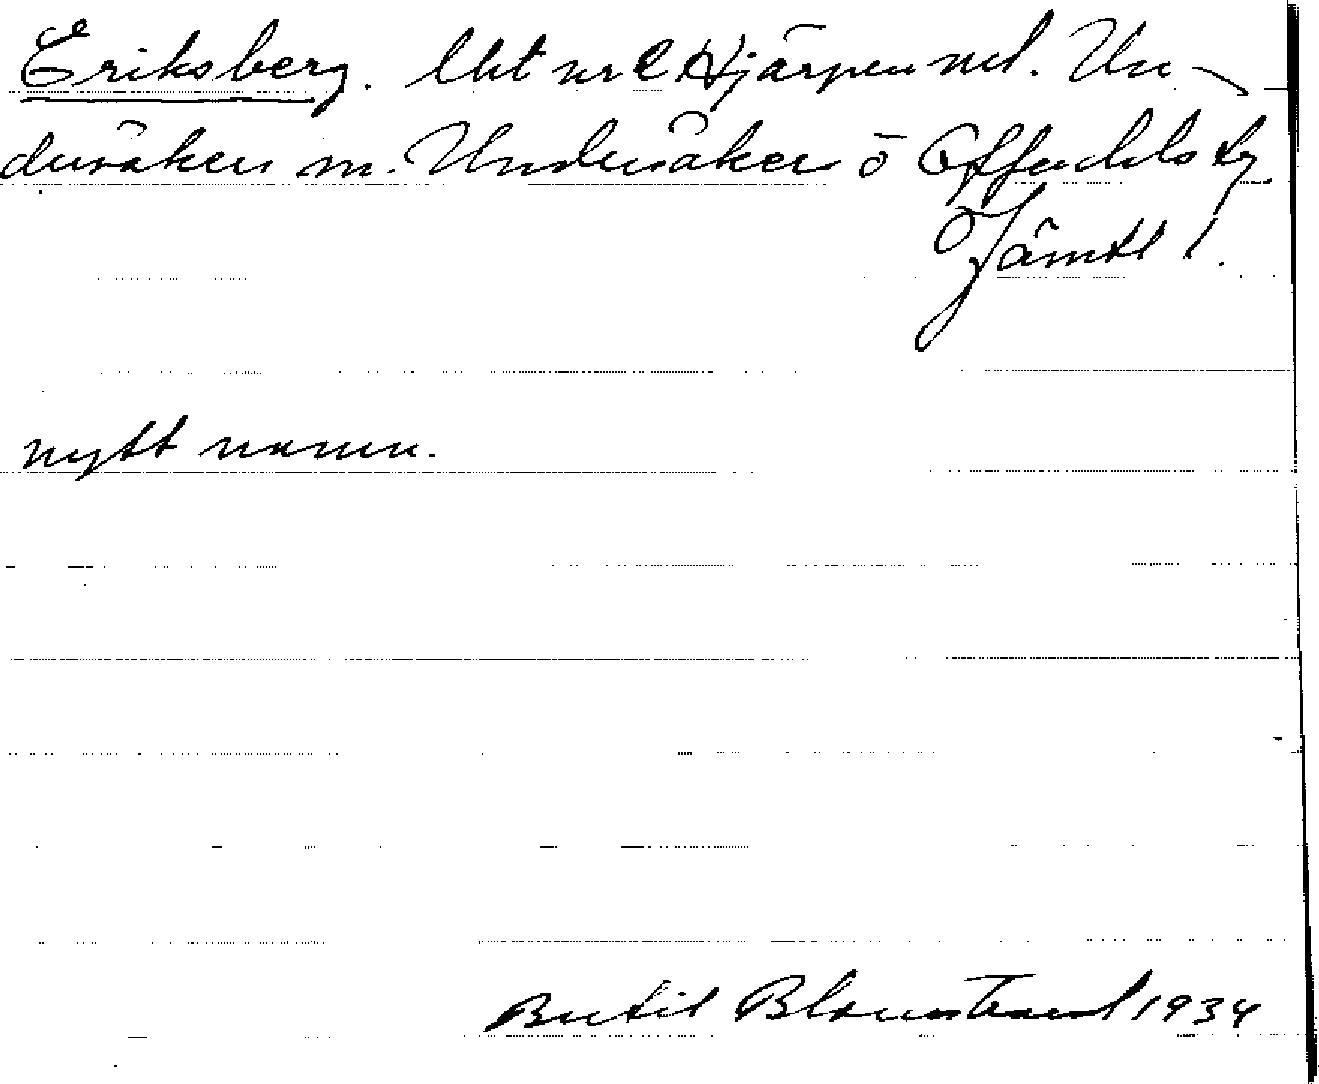 Eriksberg. lht nr Hjärpen ncl. Un-
dersåker m. Undersåker o Offerdals tg
Jämtl l.
nytt namn.
Bertil Blomstrand 1934